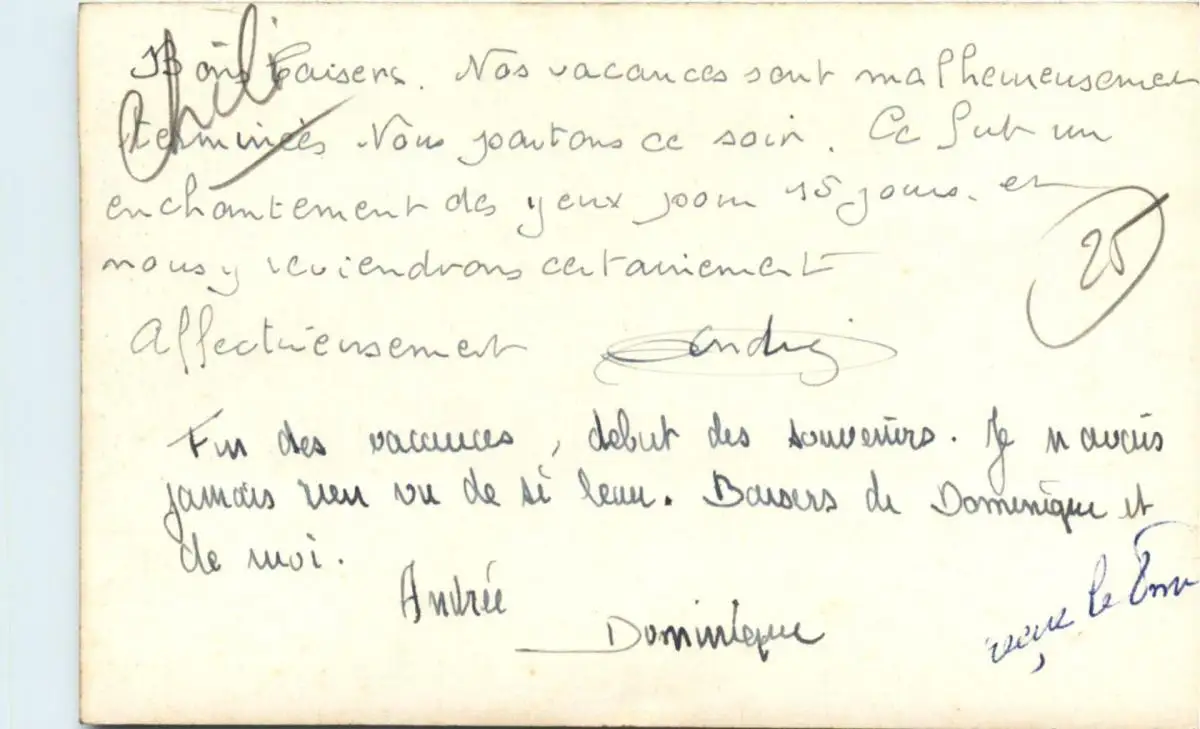 Bons baisers. Nos vacances sont malheureusement
terminées Nous partons ce soir. Ce fut un
enchantement des yeux pour 15 jours. et
nous y reviendrons certainement
Affectueusement
Chili
25
Fin des vacances, début des souvenirs. Je n'avais
jamais rien vu de si beau. Baisers de Dominique et
de moi.
Andrée
Dominique
reçue le